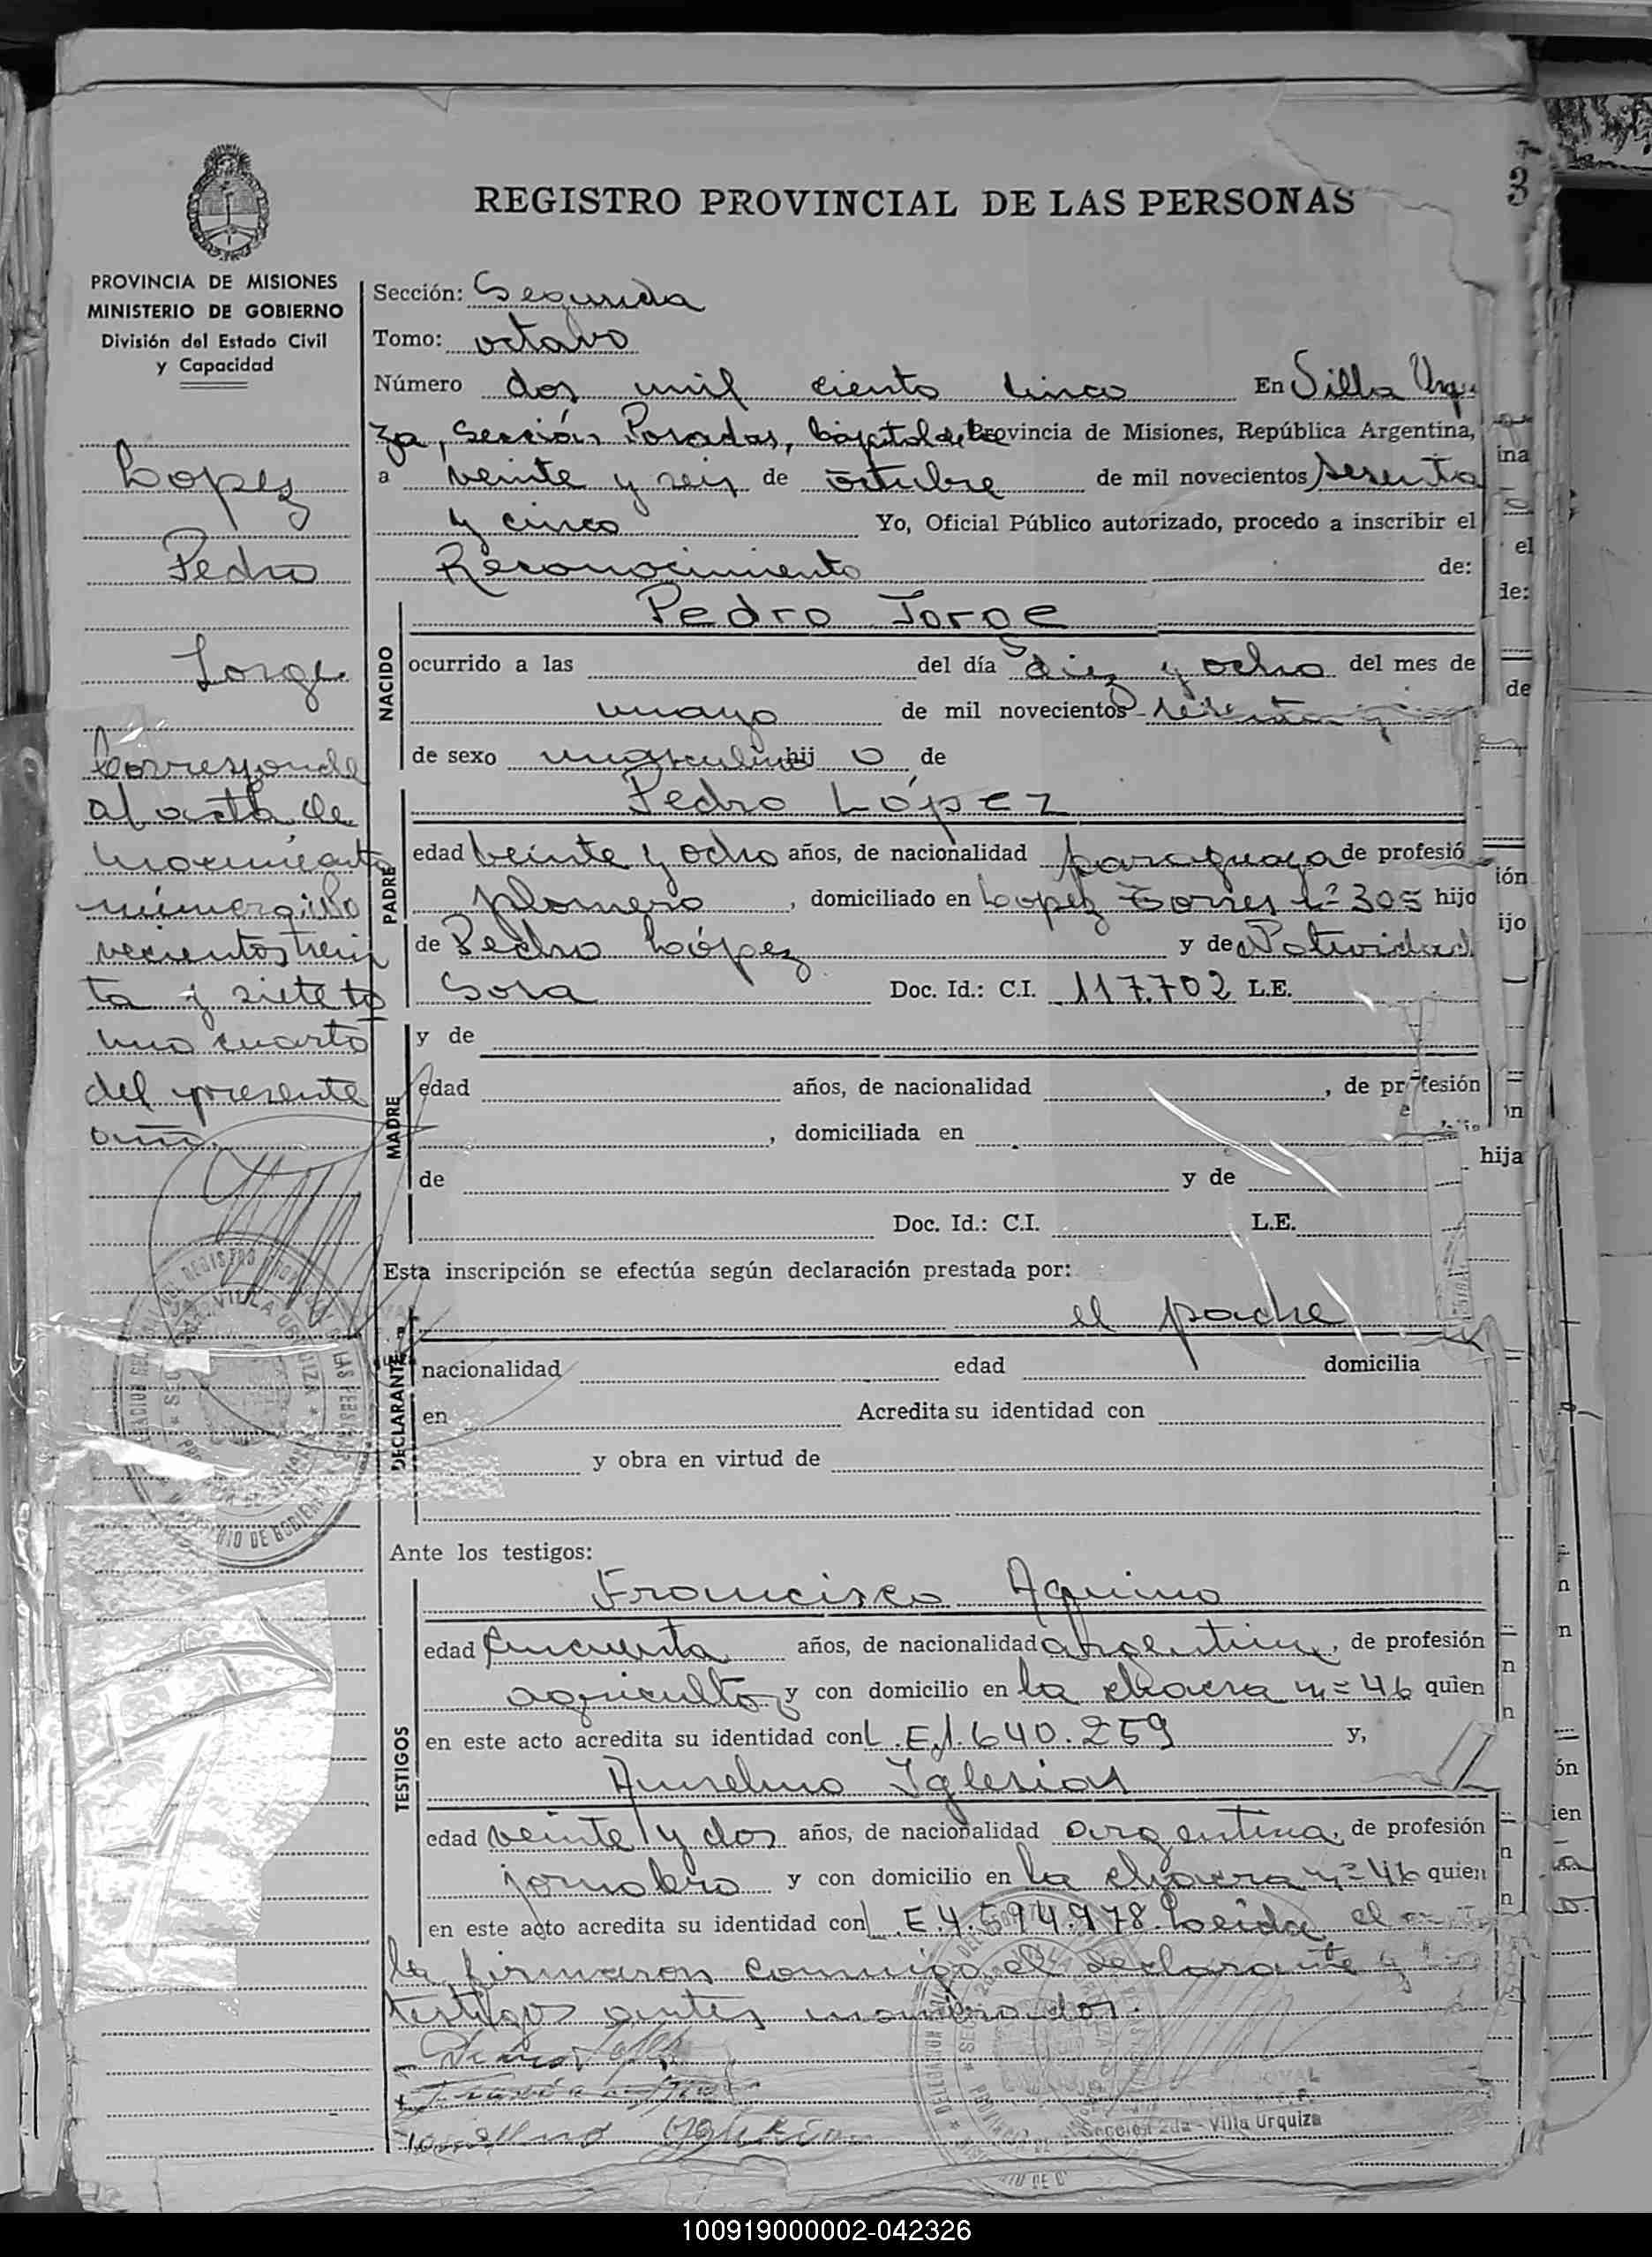 REGISTRO PROVINCIAL DE LAS PERSONAS
3
PROVINCIA DE MISIONES
MINISTERIO DE GOBIERNO
División del Estado Civil
y Capacidad
Lopez
Pedro
Jorge
Corresponde
al acta de
nacimiento
número no
vecientos trein
ta y siete to
mo cuarto
del presente
año.
Sección: Segunda
Tomo: octavo
Número dos mil ciento cinco En Villa Urqui
za, Sección Posadas, Capital de Provincia de Misiones, República Argentina,
a veinte y seis de octubre de mil novecientos sesenta
y cinco Yo, Oficial Público autorizado, procedo a inscribir el
Reconocimiento de:
NACIDO
Pedro Jorge
ocurrido a las del día diez y ocho del mes de
mayo de mil novecientos sesenta y
de sexo masculino hij o de
PADRE
Pedro López
edad veinte y ocho años, de nacionalidad paraguaya de profesió
plomero, domiciliado en Lopez Torres n° 305 hijo
de Pedro López y de Natividad
Sosa Doc. Id.: C.I. 117.702 L.E.
MADRE
y de
edad años, de nacionalidad , de profesión
, domiciliada en
hija
de y de
Doc. Id.: C.I. L.E.
Esta inscripción se efectúa según declaración prestada por:
DECLARANTE
el padre
nacionalidad edad domicilia
en Acredita su identidad con
y obra en virtud de
Ante los testigos:
TESTIGOS
Francisco Aquino
edad cincuenta años, de nacionalidad argentina, de profesión
agricultor y con domicilio en la chacra n° 46 quien
en este acto acredita su identidad con L.E.1.640.259 y,
Anselmo Iglesias
edad veinte y dos años, de nacionalidad argentina, de profesión
jornalero y con domicilio en la chacra n° 46 quien
en este acto acredita su identidad con L.E.4.594.978. Leida el
la firmaron conmigo el declarante y los
testigos antes nombrados.
Sección 2da - Villa Urquiza
100919000002-042326